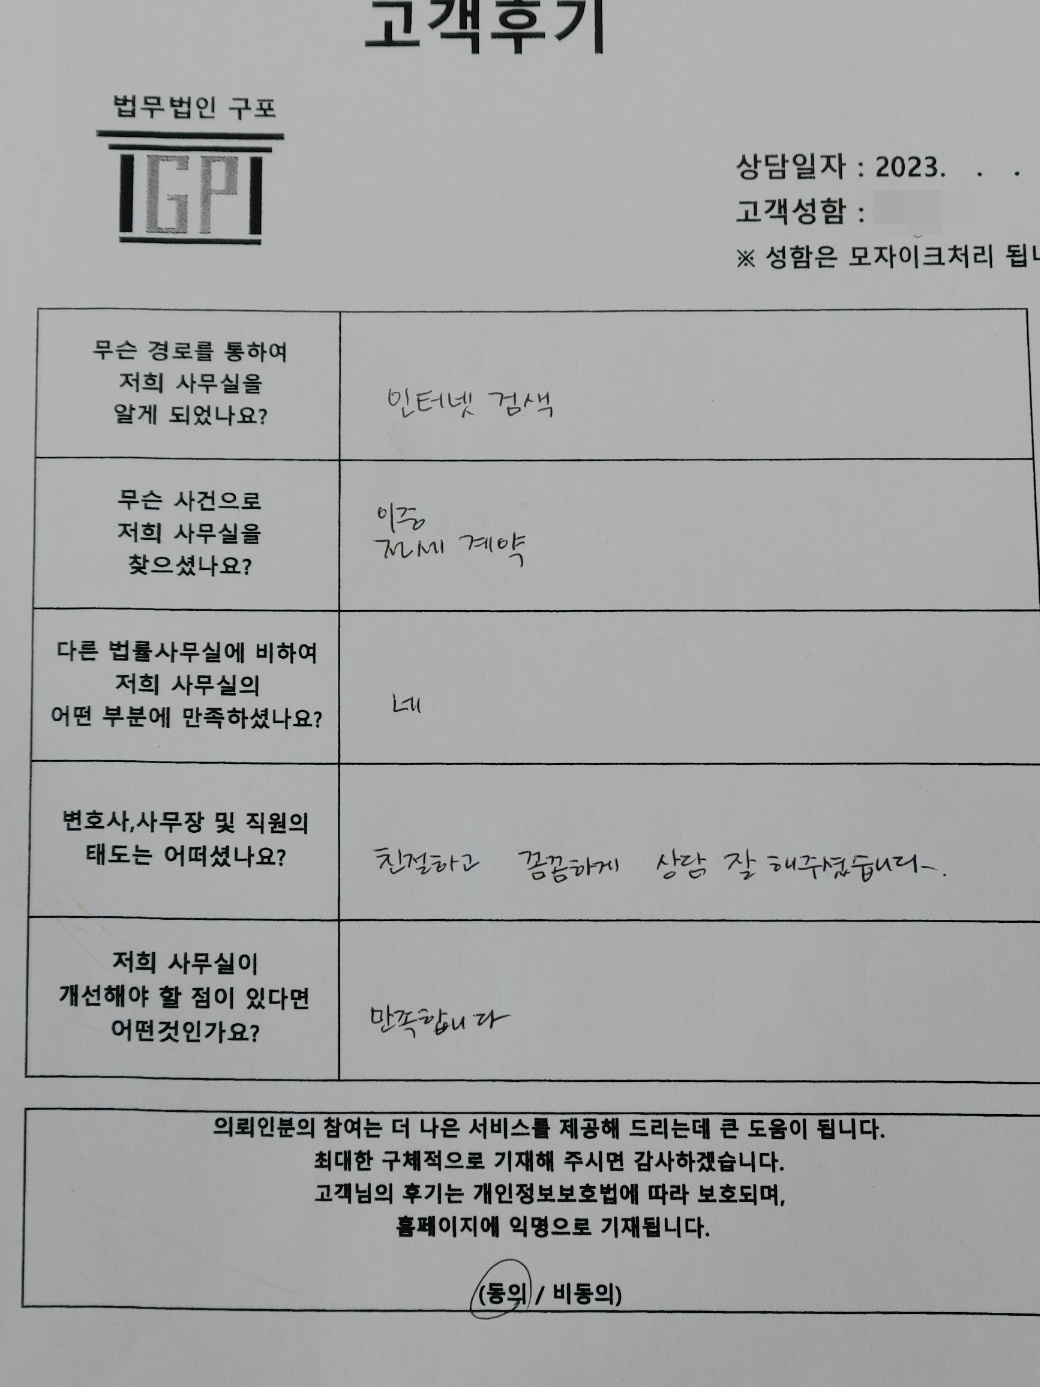 고객후기
법무법인 구포
GP
상담일자 : 2023. . .
고객성함 :
※ 성함은 모자이크처리 됩니
무슨 경로를 통하여
저희 사무실을
알게 되었나요?
인터넷 검색
무슨 사건으로
저희 사무실을
찾으셨나요?
이중
전세 계약
다른 법률사무실에 비하여
저희 사무실의
어떤 부분에 만족하셨나요?
네
변호사,사무장 및 직원의
태도는 어떠셨나요?
친절하고 꼼꼼하게 상담 잘 해주셨습니다.
저희 사무실이
개선해야 할 점이 있다면
어떤것인가요?
만족합니다
의뢰인분의 참여는 더 나은 서비스를 제공해 드리는데 큰 도움이 됩니다.
최대한 구체적으로 기재해 주시면 감사하겠습니다.
고객님의 후기는 개인정보보호법에 따라 보호되며,
홈페이지에 익명으로 기재됩니다.
(동의 / 비동의)